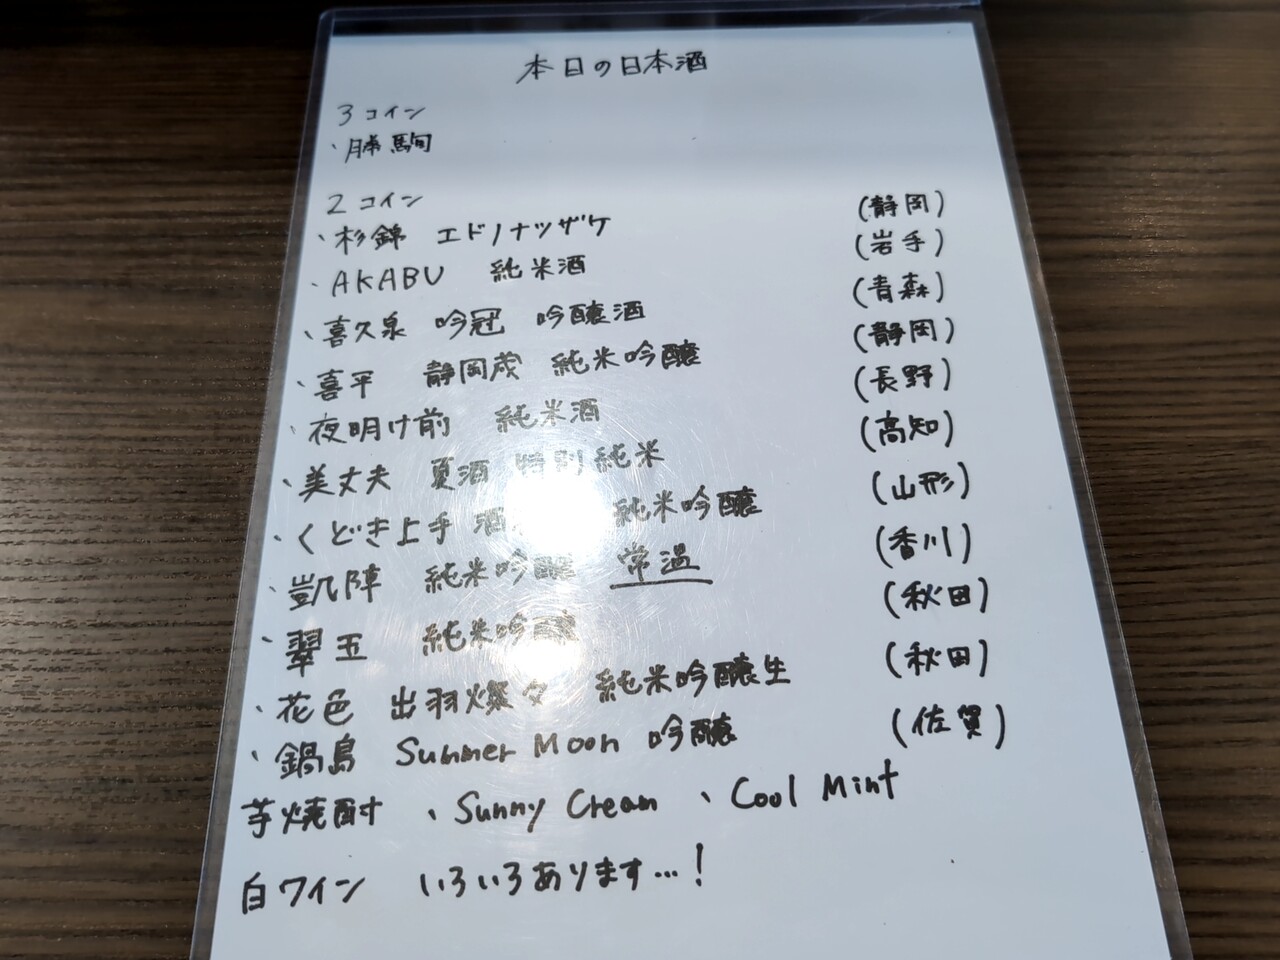 本日の日本酒
3コイン
・勝駒
2コイン
・杉錦 エドノナツザケ (静岡)
・AKABU 純米酒 (岩手)
・喜久泉 吟冠 吟醸酒 (青森)
・喜平 静岡蔵 純米吟醸 (静岡)
・夜明け前 純米酒 (長野)
・美丈夫 夏酒 特別純米 (高知)
・くどき上手 酒 純米吟醸 (山形)
・凱陣 純米吟醸 常温 (香川)
・翠玉 純米吟醸 (秋田)
・花邑 出羽燦々 純米吟醸生 (秋田)
・鍋島 Summer Moon 吟醸 (佐賀)
芋焼酎 、Sunny Cream 、Cool Mint
白ワイン いろいろあります…!